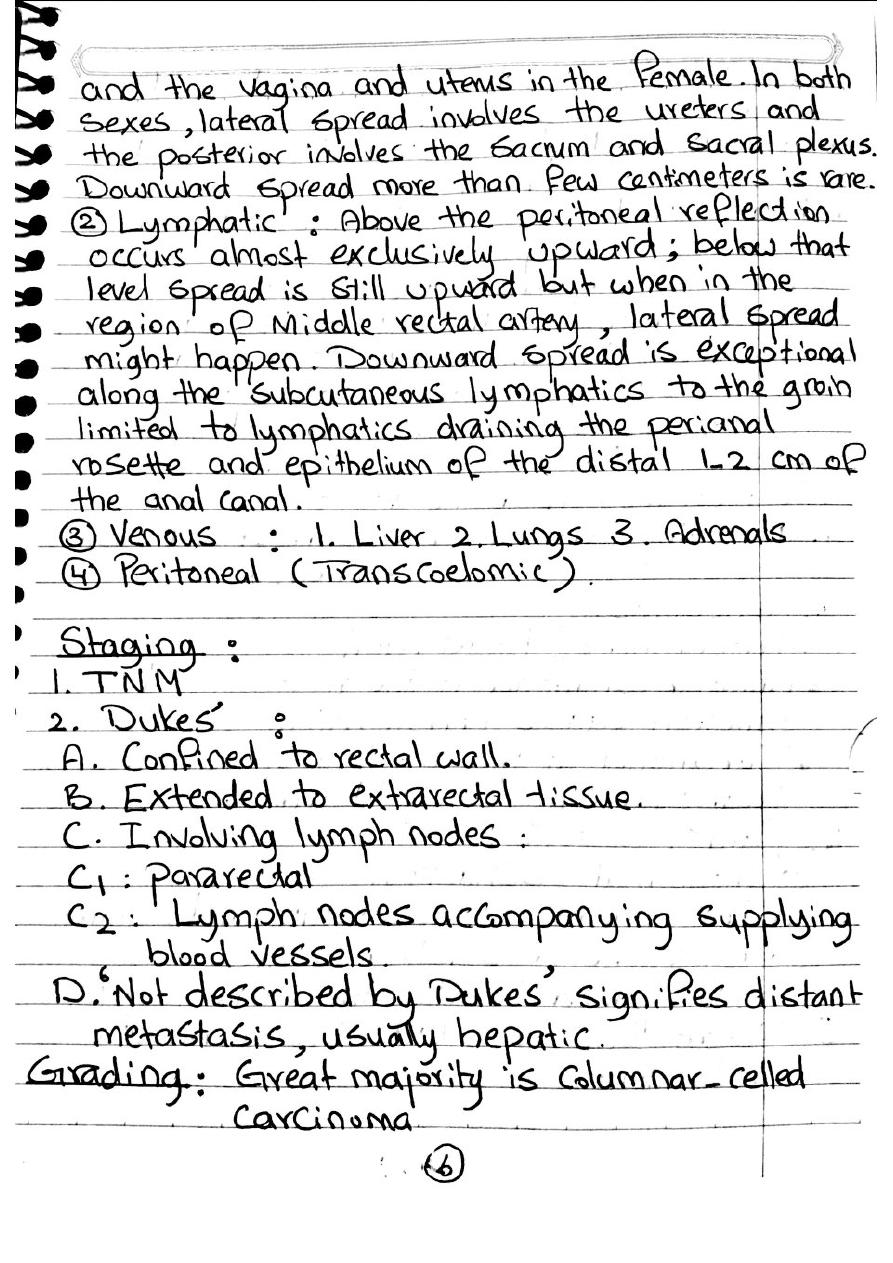 and the vagina and uterus in the female. In both
sexes, lateral spread involves the ureters and
the posterior involves the sacrum and sacral plexus.
Downward spread more than few centimeters is rare.
② Lymphatic : Above the peritoneal reflection
occurs almost exclusively upward; below that
level spread is still upward but when in the
region of Middle rectal artery, lateral spread
might happen. Downward spread is exceptional
along the subcutaneous lymphatics to the groin
limited to lymphatics draining the perianal
rosette and epithelium of the distal 1-2 cm of
the anal canal.
③ Venous : 1. Liver 2. Lungs 3. Adrenals
④ Peritoneal (Transcoelomic).
Staging :
1. TNM
2. Dukes' :
A. Confined to rectal wall.
B. Extended to extrarectal tissue.
C. Involving lymph nodes :
C1 : pararectal
C2 : Lymph nodes accompanying supplying
blood vessels.
D. 'Not described by Dukes' signifies distant
metastasis, usually hepatic.
Grading : Great majority is Columnar-celled
carcinoma
⑥